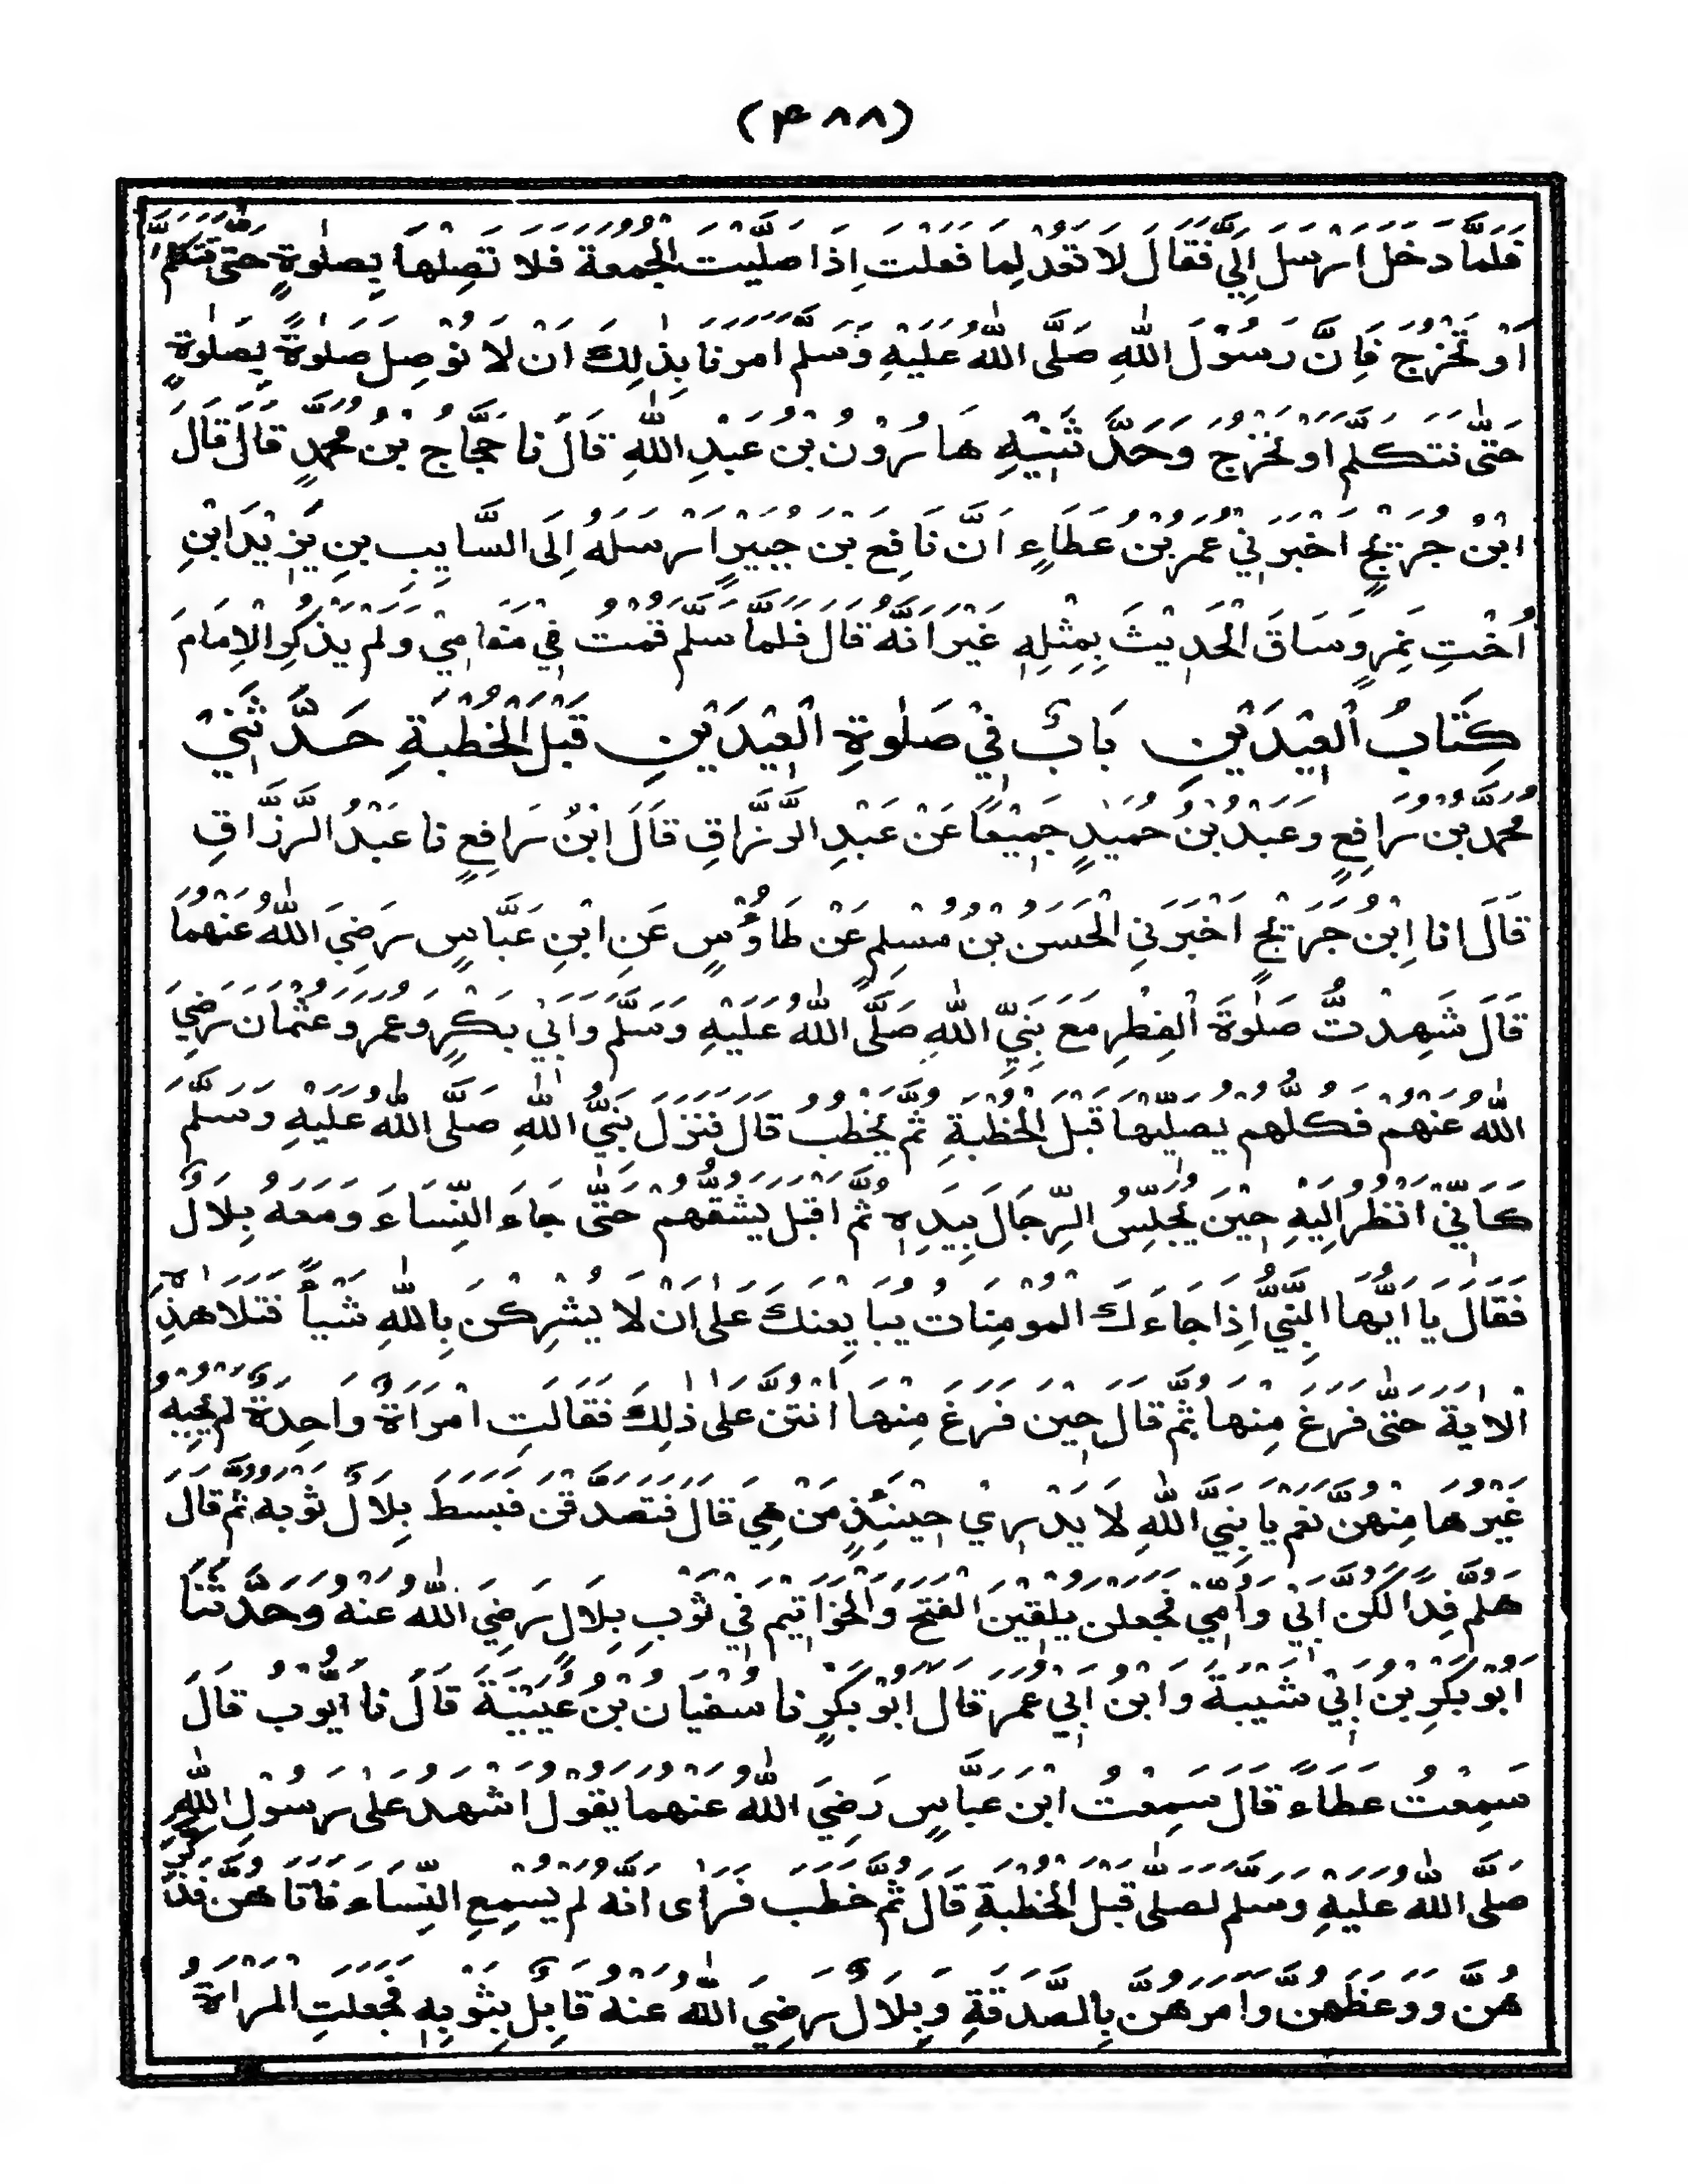 (۴۸۸)
فَلَمَّا دَخَلَ اَرْسَلَ اِلَيَّ فَقَالَ لَا تَعُدْ لِمَا فَعَلْتَ اِذَا صَلَّيْتَ الْجُمُعَةَ فَلَا تَصِلْهَا بِصَلٰوةٍ حَتّٰى تَكَلَّمَ
اَوْ تَخْرُجَ فَاِنَّ رَسُوْلَ اللّٰهِ صَلَّى اللّٰهُ عَلَيْهِ وَسَلَّمَ اَمَرَنَا بِذٰلِكَ اَنْ لَا نُوْصِلَ صَلٰوةً بِصَلٰوةٍ
حَتّٰى نَتَكَلَّمَ اَوْ نَخْرُجَ وَحَدَّثَنِيْهِ هَارُوْنُ بْنُ عَبْدِ اللّٰهِ قَالَ نَا حَجَّاجُ بْنُ مُحَمَّدٍ قَالَ قَالَ
ابْنُ جُرَيْجٍ اَخْبَرَنِيْ عُمَرُ بْنُ عَطَاءٍ اَنَّ نَافِعَ بْنَ جُبَيْرٍ اَرْسَلَهُ اِلَى السَّايِبِ بْنِ يَزِيْدَ ابْنِ
اُخْتِ نَمِرٍ وَسَاقَ الْحَدِيْثَ بِمِثْلِهٖ غَيْرَ اَنَّهُ قَالَ فَلَمَّا سَلَّمَ قُمْتُ فِيْ مَقَامِيْ وَلَمْ يَذْكُرِ الْاِمَامَ
كِتَابُ الْعِيْدَيْنِ بَابٌ فِيْ صَلٰوةِ الْعِيْدَيْنِ قَبْلَ الْخُطْبَةِ حَدَّثَنِيْ
مُحَمَّدُ بْنُ رَافِعٍ وَعَبْدُ بْنُ حُمَيْدٍ جَمِيْعًا عَنْ عَبْدِ الرَّزَّاقِ قَالَ ابْنُ رَافِعٍ نَا عَبْدُ الرَّزَّاقِ
قَالَ اَنَا اِبْنُ جُرَيْجٍ اَخْبَرَنِي الْحَسَنُ بْنُ مُسْلِمٍ عَنْ طَاوُسٍ عَنِ ابْنِ عَبَّاسٍ رَضِيَ اللّٰهُ عَنْهُمَا
قَالَ شَهِدْتُّ صَلٰوةَ الْفِطْرِ مَعَ نَبِيِّ اللّٰهِ صَلَّى اللّٰهُ عَلَيْهِ وَسَلَّمَ وَاَبِيْ بَكْرٍ وَعُمَرَ وَعُثْمَانَ رَضِيَ
اللّٰهُ عَنْهُمْ فَكُلُّهُمْ يُصَلِّيْهَا قَبْلَ الْخُطْبَةِ ثُمَّ يَخْطُبُ قَالَ فَنَزَلَ نَبِيُّ اللّٰهِ صَلَّى اللّٰهُ عَلَيْهِ وَسَلَّمَ
كَاَنِّيْ اَنْظُرُ اِلَيْهِ حِيْنَ يُجَلِّسُ الرِّجَالَ بِيَدِهٖ ثُمَّ اَقْبَلَ يَشُقُّهُمْ حَتّٰى جَاءَ النِّسَاءَ وَمَعَهُ بِلَالٌ
فَقَالَ يَا اَيُّهَا النَّبِيُّ اِذَا جَاءَكَ الْمُومِنَاتُ يُبَايِعْنَكَ عَلٰى اَنْ لَا يُشْرِكْنَ بِاللّٰهِ شَيْأً فَتَلَا هٰذِهِ
الْاٰيَةَ حَتّٰى فَرَغَ مِنْهَا ثُمَّ قَالَ حِيْنَ فَرَغَ مِنْهَا اَنْتُنَّ عَلٰى ذٰلِكَ فَقَالَتِ امْرَاَةٌ وَاحِدَةٌ لَمْ يُجِبْهُ
غَيْرُهَا مِنْهُنَّ نَعَمْ يَا نَبِيَّ اللّٰهِ لَا يَدْرِيْ حِيْنَئِذٍ مَنْ هِيَ قَالَ فَتَصَدَّقْنَ فَبَسَطَ بِلَالٌ ثَوْبَهُ ثُمَّ قَالَ
هَلُمَّ فِدًا لَكُنَّ اَبِيْ وَاُمِّيْ فَجَعَلْنَ يُلْقِيْنَ الْفَتَخَ وَالْخَوَاتِيْمَ فِيْ ثَوْبِ بِلَالٍ رَضِيَ اللّٰهُ عَنْهُ وَحَدَّثَنَا
اَبُوْ بَكْرِ بْنُ اَبِيْ شَيْبَةَ وَابْنُ اَبِيْ عُمَرَ قَالَ اَبُوْ بَكْرٍ نَا سُفْيَانُ بْنُ عُيَيْنَةَ قَالَ نَا اَيُّوْبُ قَالَ
سَمِعْتُ عَطَاءً قَالَ سَمِعْتُ ابْنَ عَبَّاسٍ رَضِيَ اللّٰهُ عَنْهُمَا يَقُوْلُ اَشْهَدُ عَلٰى رَسُوْلِ اللّٰهِ
صَلَّى اللّٰهُ عَلَيْهِ وَسَلَّمَ لَصَلّٰى قَبْلَ الْخُطْبَةِ قَالَ ثُمَّ خَطَبَ فَرَاٰى اَنَّهُ لَمْ يُسْمِعِ النِّسَاءَ فَاَتَاهُنَّ فَذَكَّرَ
هُنَّ وَوَعَظَهُنَّ وَاَمَرَهُنَّ بِالصَّدَقَةِ وَبِلَالٌ رَضِيَ اللّٰهُ عَنْهُ قَابِلٌ بِثَوْبِهٖ فَجَعَلَتِ الْمَرْاَةُ